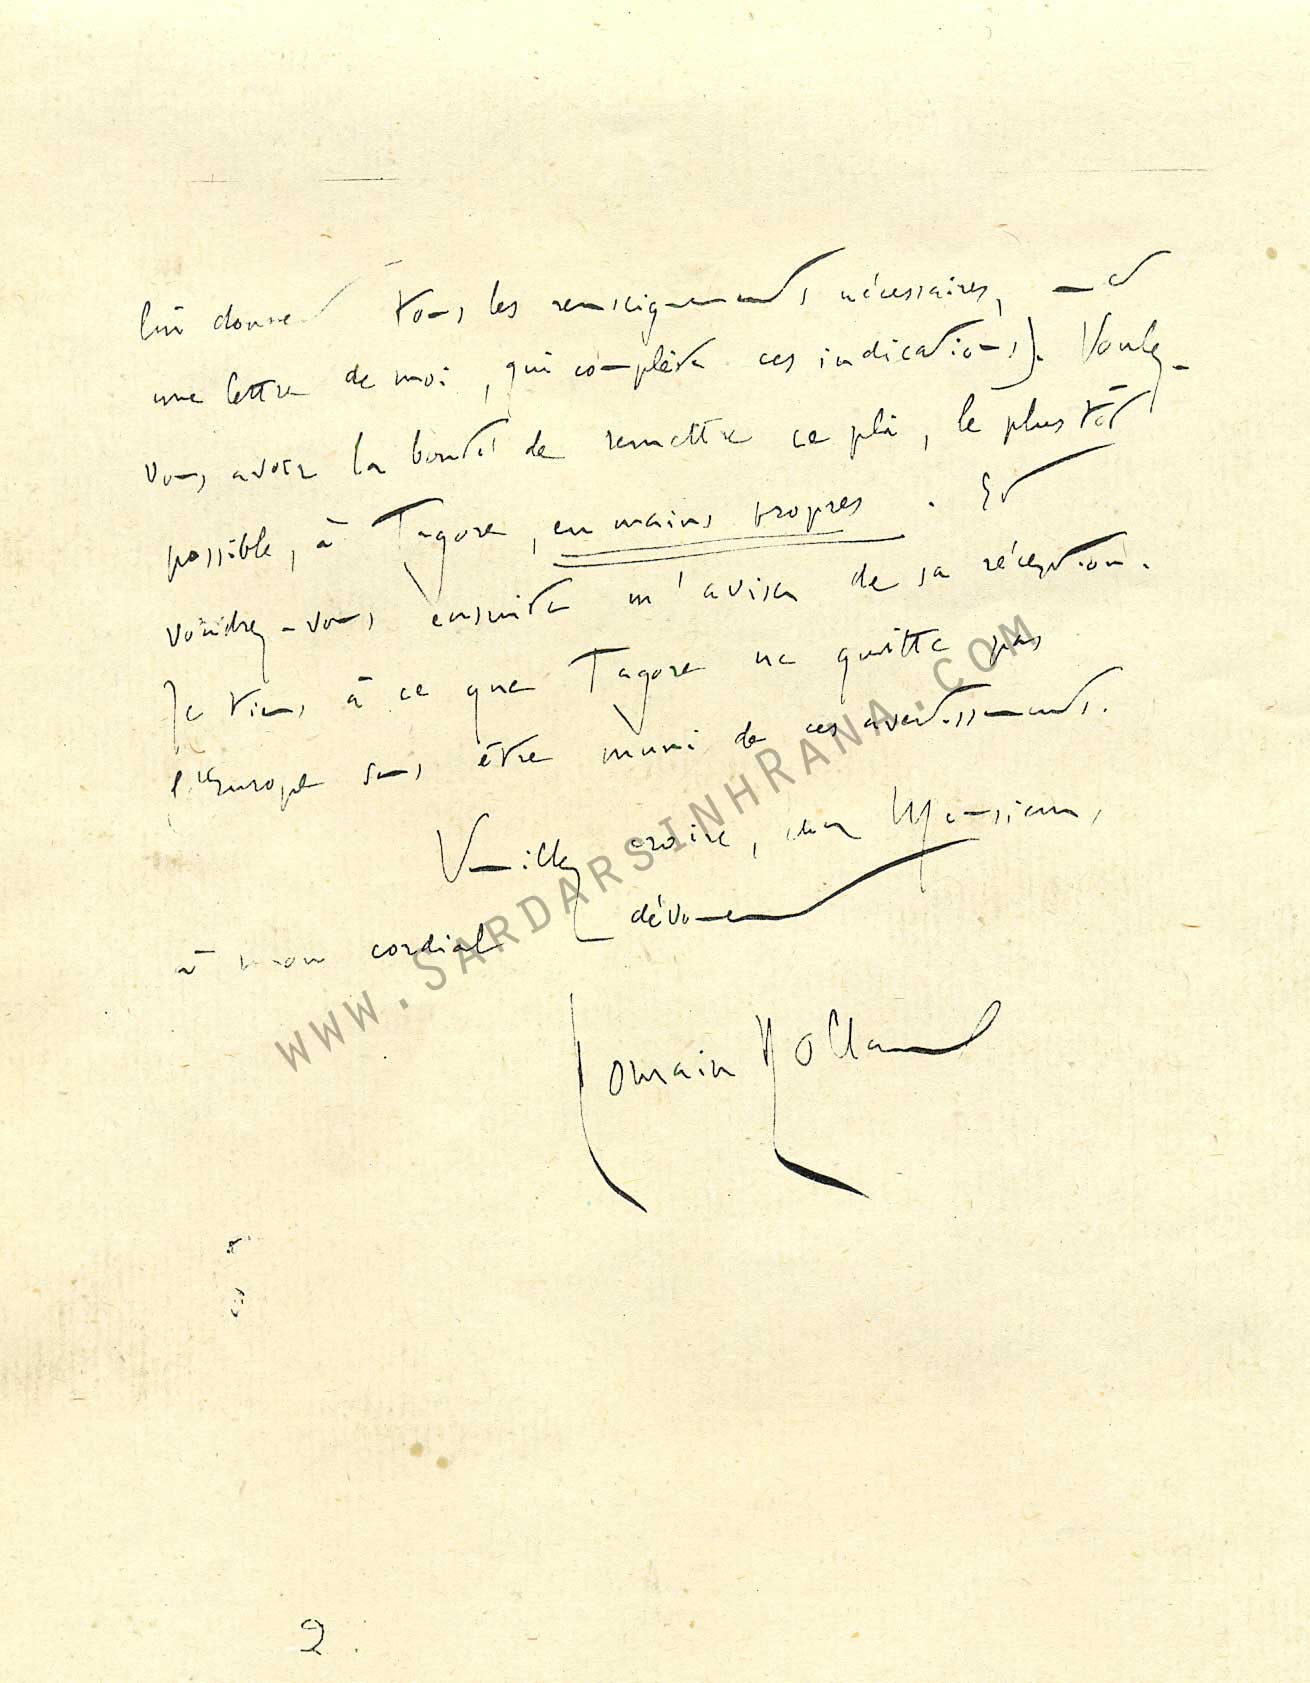 lui donnent tous les renseignements nécessaires, — et
une lettre de moi, qui complète ces indications). Voulez-
vous avoir la bonté de remettre ce pli, le plus tôt
possible, à Tagore, en mains propres. Et
voudrez-vous ensuite m'aviser de sa réception.
Je tiens à ce que Tagore ne quitte pas
l'Europe sans être muni de ces avertissements.
Veuillez croire, cher Monsieur,
à mon cordial dévouement
Romain Rolland
www.SardarsinhRana.com
2.